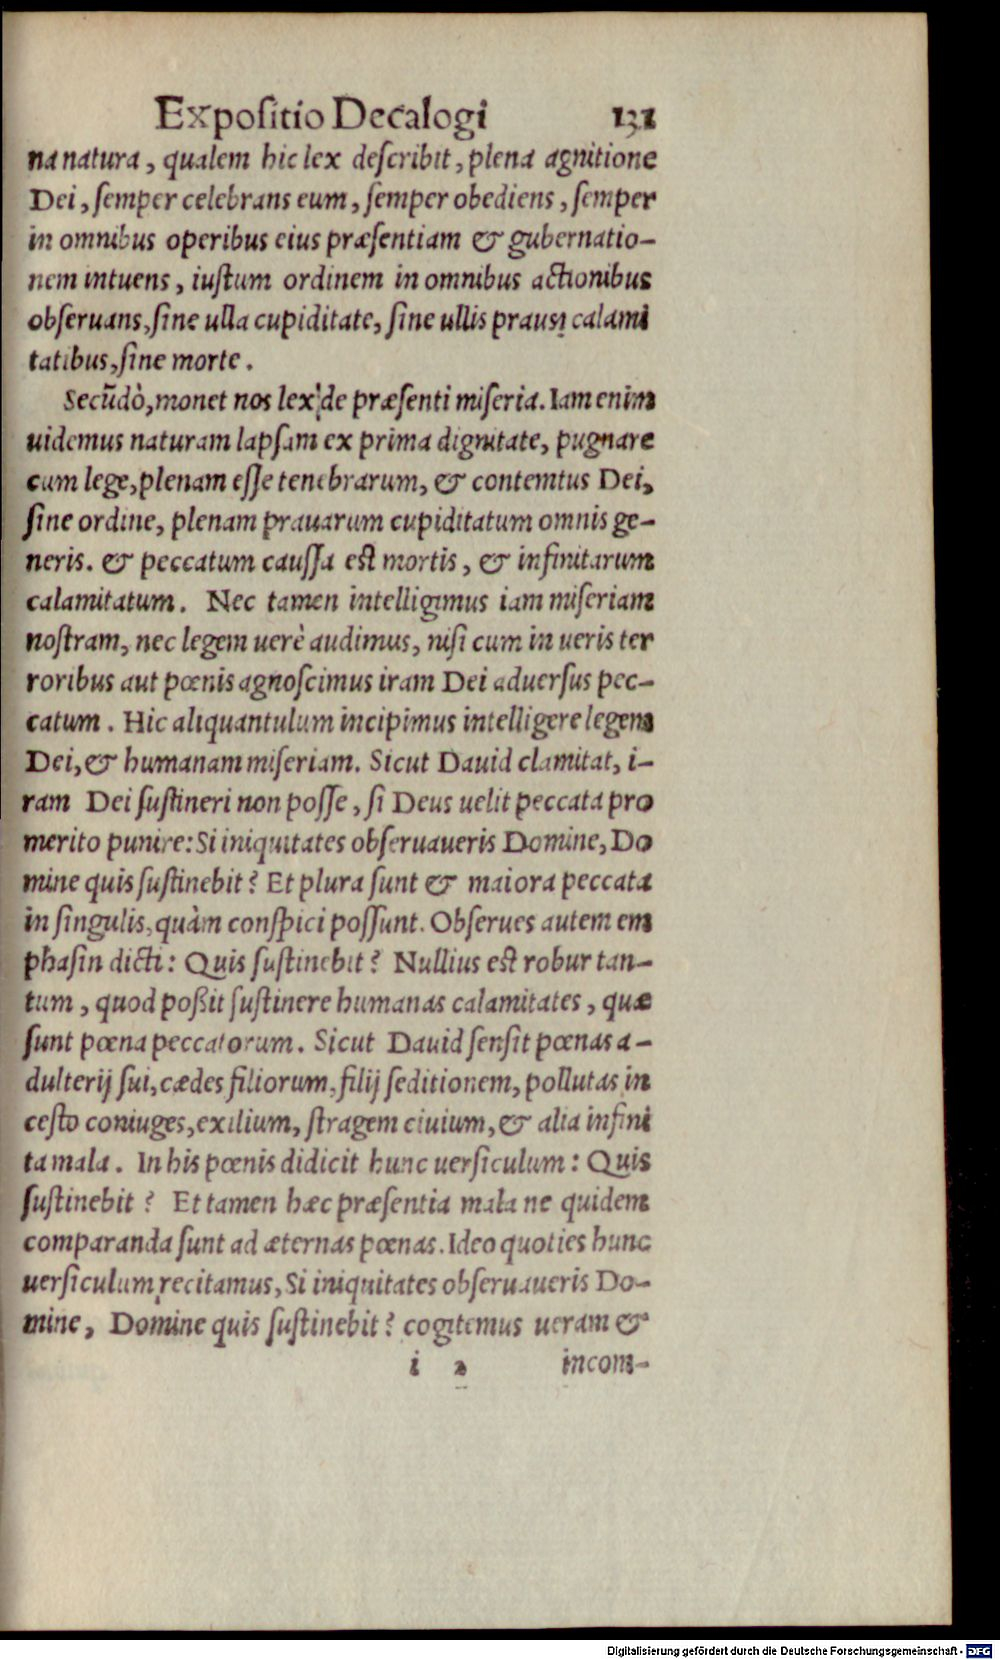 Expositio Decalogi 131
na natura, qualem hic lex describit, plena agnitione
Dei, semper celebrans eum, semper obediens, semper
in omnibus operibus eius præsentiam & gubernatio-
nem intuens, iustum ordinem in omnibus actionibus
obseruans, sine ulla cupiditate, sine ullis prausı calami
tatibus, sine morte.
Secũdò, monet nos lex de præsenti miseria. Iam enim
uidemus naturam lapsam ex prima dignitate, pugnare
cum lege, plenam esse tenebrarum, & contemtus Dei,
sine ordine, plenam prauarum cupiditatum omnis ge-
neris. & peccatum caussa est mortis, & infinitarum
calamitatum. Nec tamen intelligimus iam miseriam
nostram, nec legem uerè audimus, nisi cum in ueris ter
roribus aut pœnis agnoscimus iram Dei aduersus pec-
catum. Hic aliquantulum incipimus intelligere legem
Dei, & humanam miseriam. Sicut Dauid clamitat, i-
ram Dei sustineri non posse, si Deus uelit peccata pro
merito punire: Si iniquitates obseruaueris Domine, Do
mine quis sustinebit? Et plura sunt & maiora peccata
in singulis, quàm conspici possunt. Obserues autem em
phasin dicti: Quis sustinebit? Nullius est robur tan-
tum, quod poßit sustinere humanas calamitates, quæ
sunt pœna peccatorum. Sicut Dauid sensit pœnas a-
dulterij sui, cædes filiorum, filij seditionem, pollutas in
cesto coniuges, exilium, stragem ciuium, & alia infini
ta mala. In his pœnis didicit hunc uersiculum: Quis
sustinebit? Et tamen hæc præsentia mala ne quidem
comparanda sunt ad æternas pœnas. Ideo quoties hunc
uersiculum recitamus, Si iniquitates obseruaueris Do-
mine, Domine quis sustinebit? cogitemus ueram &
i 2 incom-
Digitalisierung gefördert durch die Deutsche Forschungsgemeinschaft - DFG